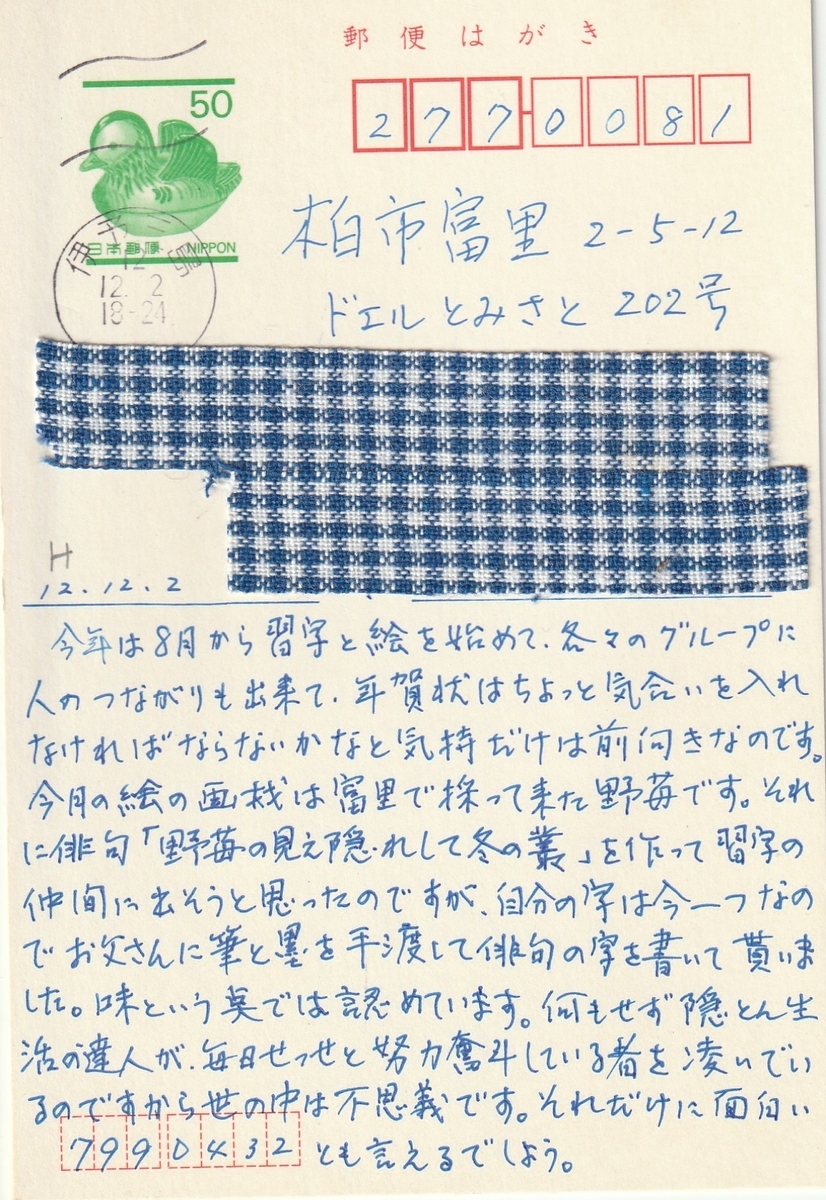 郵便はがき
50
277-0081
日本郵便 NIPPON
伊予三島
12
12. 2
18-24
柏市富里 2-5-12
ドエルとみさと 202号
H
12.12.2
今年は8月から習字と絵を始めて、各々のグループに
人のつながりも出来て、年賀状はちょっと気合いを入れ
なければならないかなと気持だけは前向きなのです。
今月の絵の画材は富里で採って来た野苺です。それ
に俳句「野苺の見え隠れして冬の叢」を作って習字の
仲間に出そうと思ったのですが、自分の字は今一つなの
でお父さんに筆と墨を手渡して俳句の字を書いて貰いま
した。味という点では認めています。何もせず隠とん生
活の達人が、毎日せっせと努力奮斗している者を凌いでい
るのですから世の中は不思義です。それだけに面白い
7990432 とも言えるでしょう。